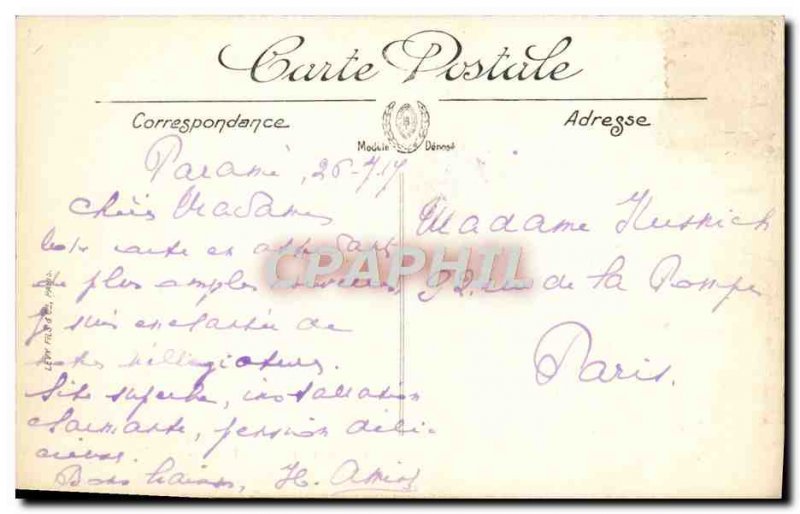 Carte Postale
Correspondance
Adresse
Modèle Déposé
Paramé, 26-7-17
chère Madame
carte en attendant
de plus amples
je suis enchantée de
notre villégiature.
Site superbe, installation
charmante, pension déli-
cieuse.
Bons baisers, H.
Madame
92 rue de la Pompe
Paris.
LEVY FILS & Cie, PARIS
CPAPHIL